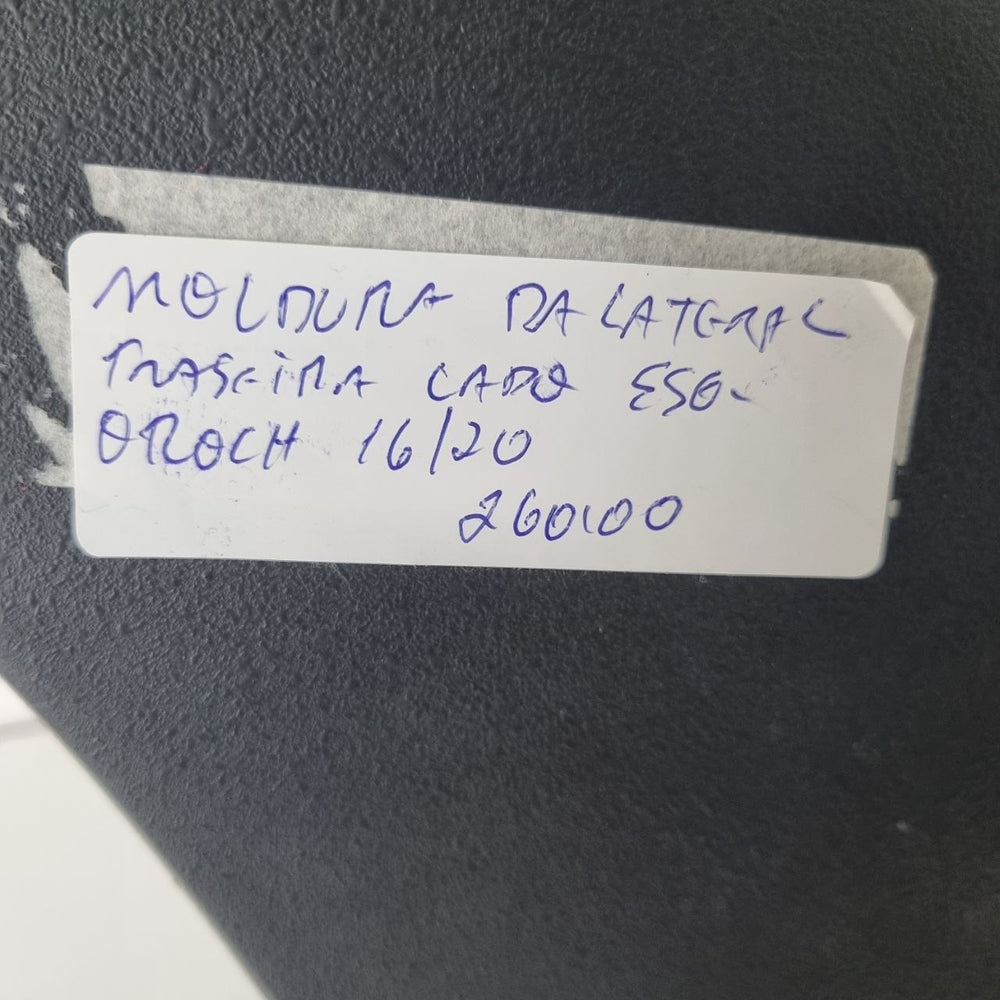 MOLDURA DA LATERAL
TRASEIRA LADO ESQ.
OROCH 16/20
260,00